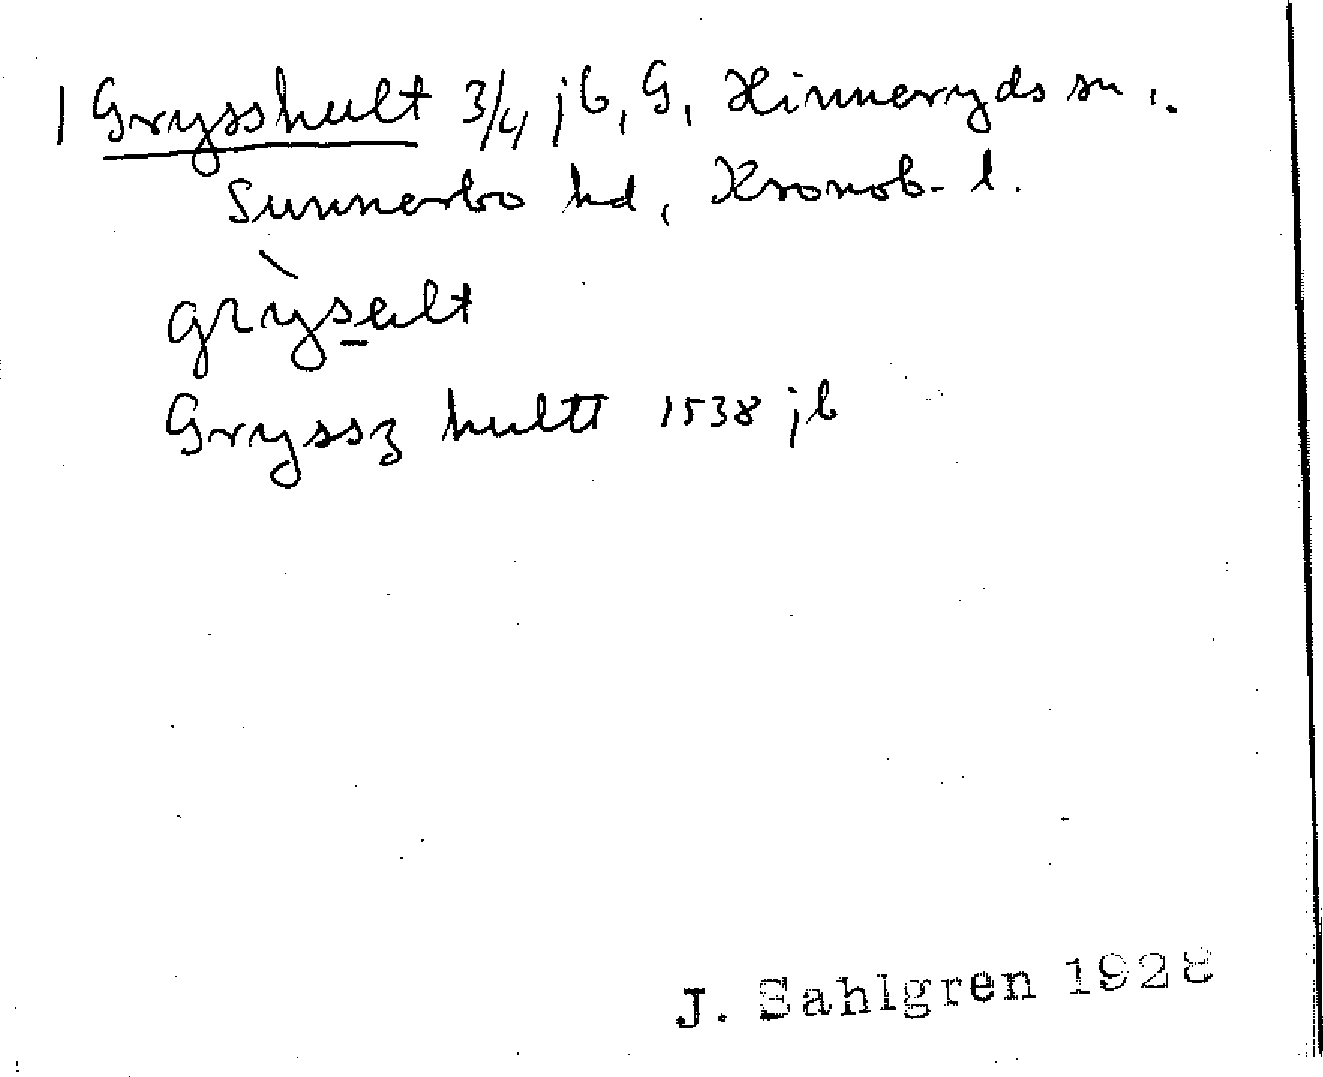 | Grysshult 3/4 jb, G, Hinneryds sn,.
Sunnerbo hd, Kronob. l.
grỳ̖salt
Gryssz hultt 1538 jb
J. Sahlgren 1928